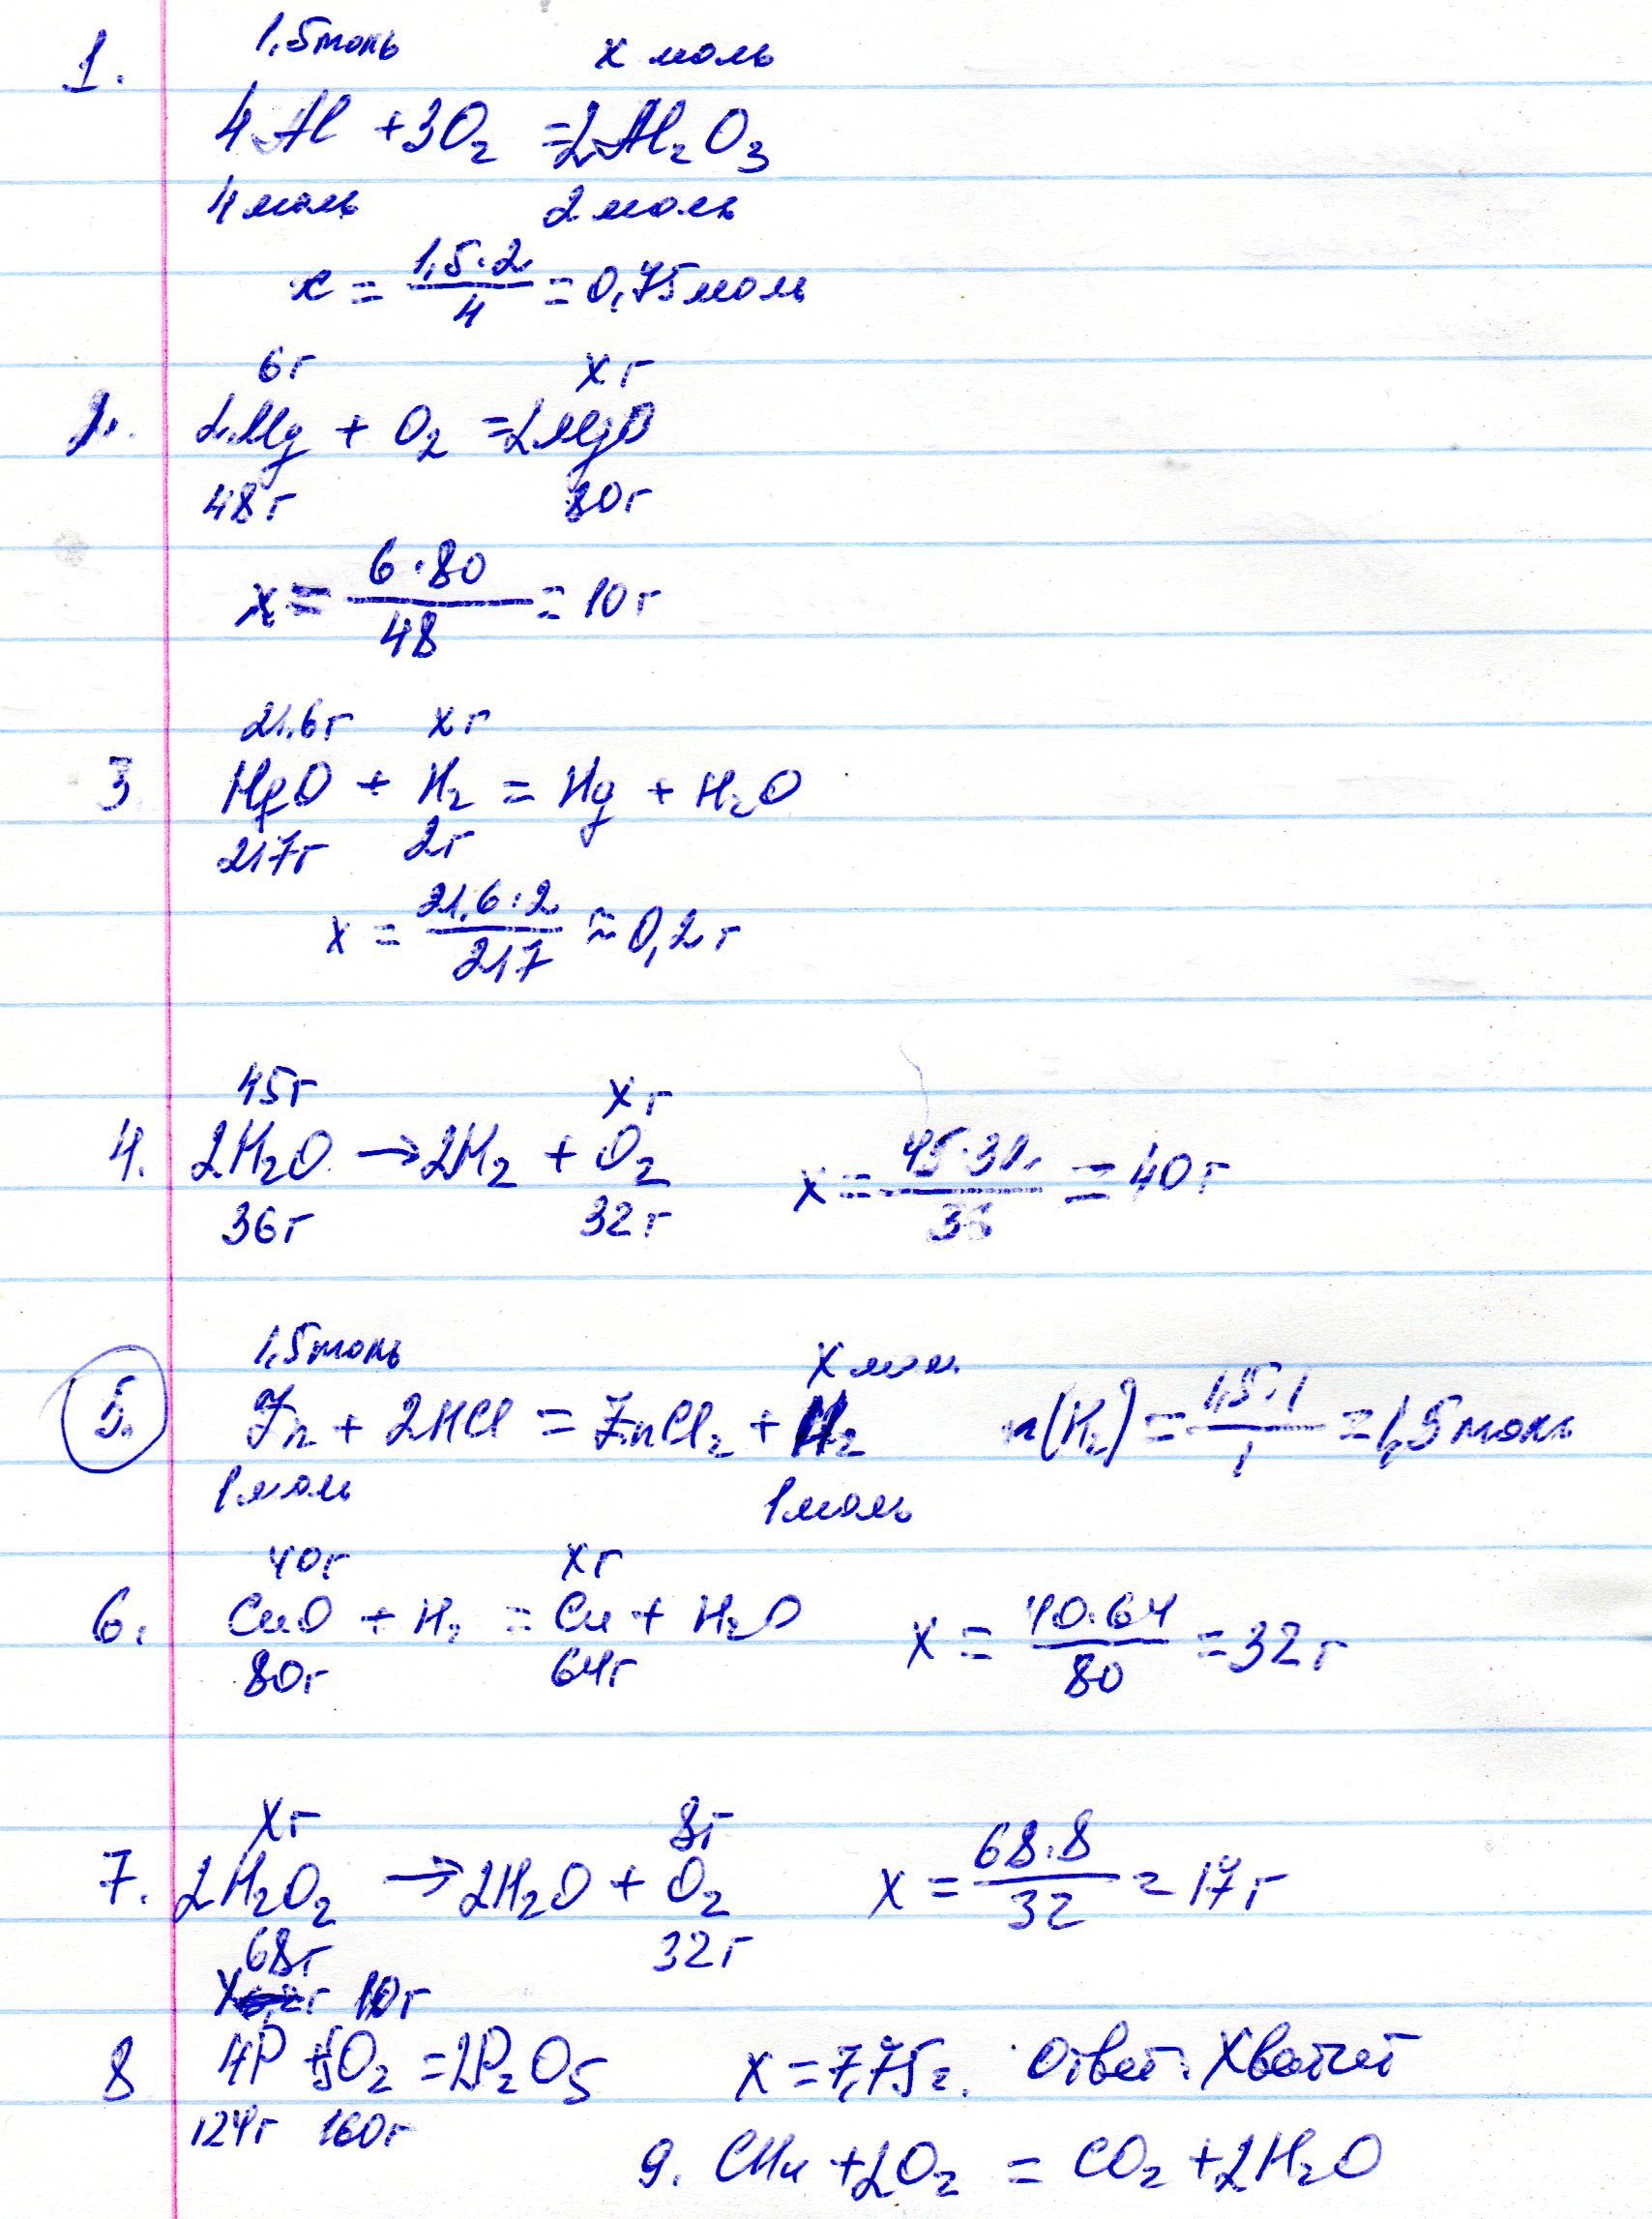 1,5моль x моль
1.
4Al + 3O₂ = 2Al₂O₃
4моль 2моль
x = 1,5·2/4 = 0,75моль
6г xг
2. 2Mg + O₂ = 2MgO
48г 80г
x = 6·80/48 = 10г
21,6г xг
3 HgO + H₂ = Hg + H₂O
217г 2г
x = 21,6·2/217 ≈ 0,2г
45г xг
4. 2H₂O → 2H₂ + O₂ x = 45·32/36 = 40г
36г 32г
1,5моль x мол.
5. Zn + 2HCl = ZnCl₂ + H₂ n(H₂) = 1,5·1/1 = 1,5моль
1моль 1моль
40г xг
6. CuO + H₂ = Cu + H₂O x = 40·64/80 = 32г
80г 64г
xг 8г
7. 2H₂O₂ → 2H₂O + O₂ x = 68·8/32 = 17г
68г 32г
xг 10г
8 4P + 5O₂ = 2P₂O₅ x = 7,75г. Ответ: Хватит
124г 160г
9. CH₄ + 2O₂ = CO₂ + 2H₂O